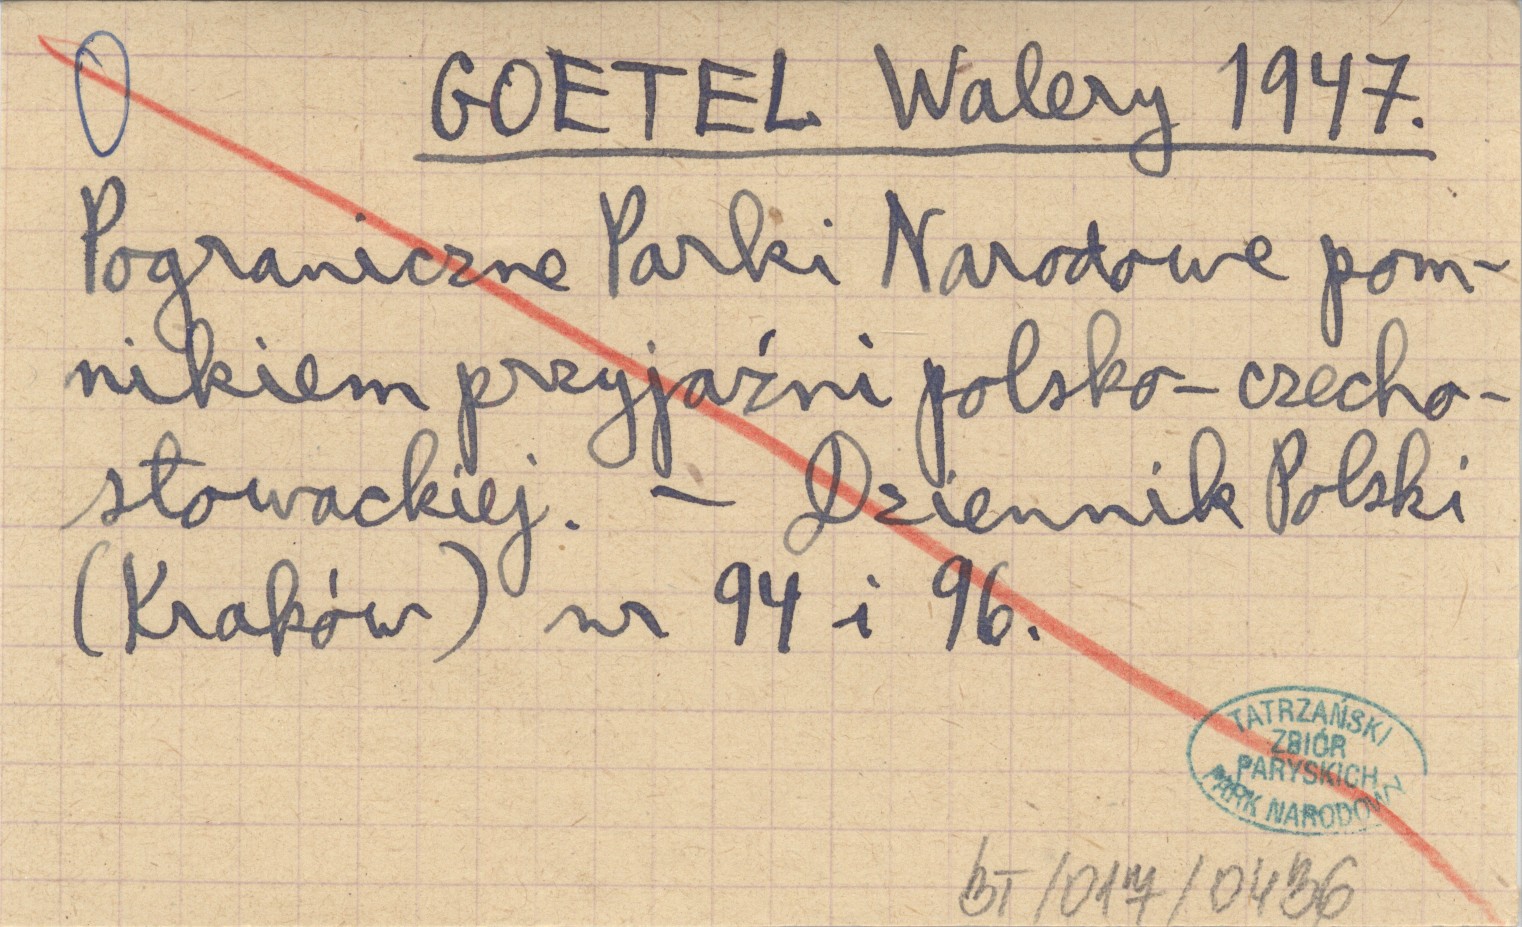 GOETEL Walery 1947.
Pograniczne Parki Narodowe pom-
nikiem przyjaźni polsko-czecho-
słowackiej. - Dziennik Polski
(Kraków) nr 94 i 96.
TATRZAŃSKI
ZBIÓR
PARYSKICH
PARK NARODOWY
BT/017/0436